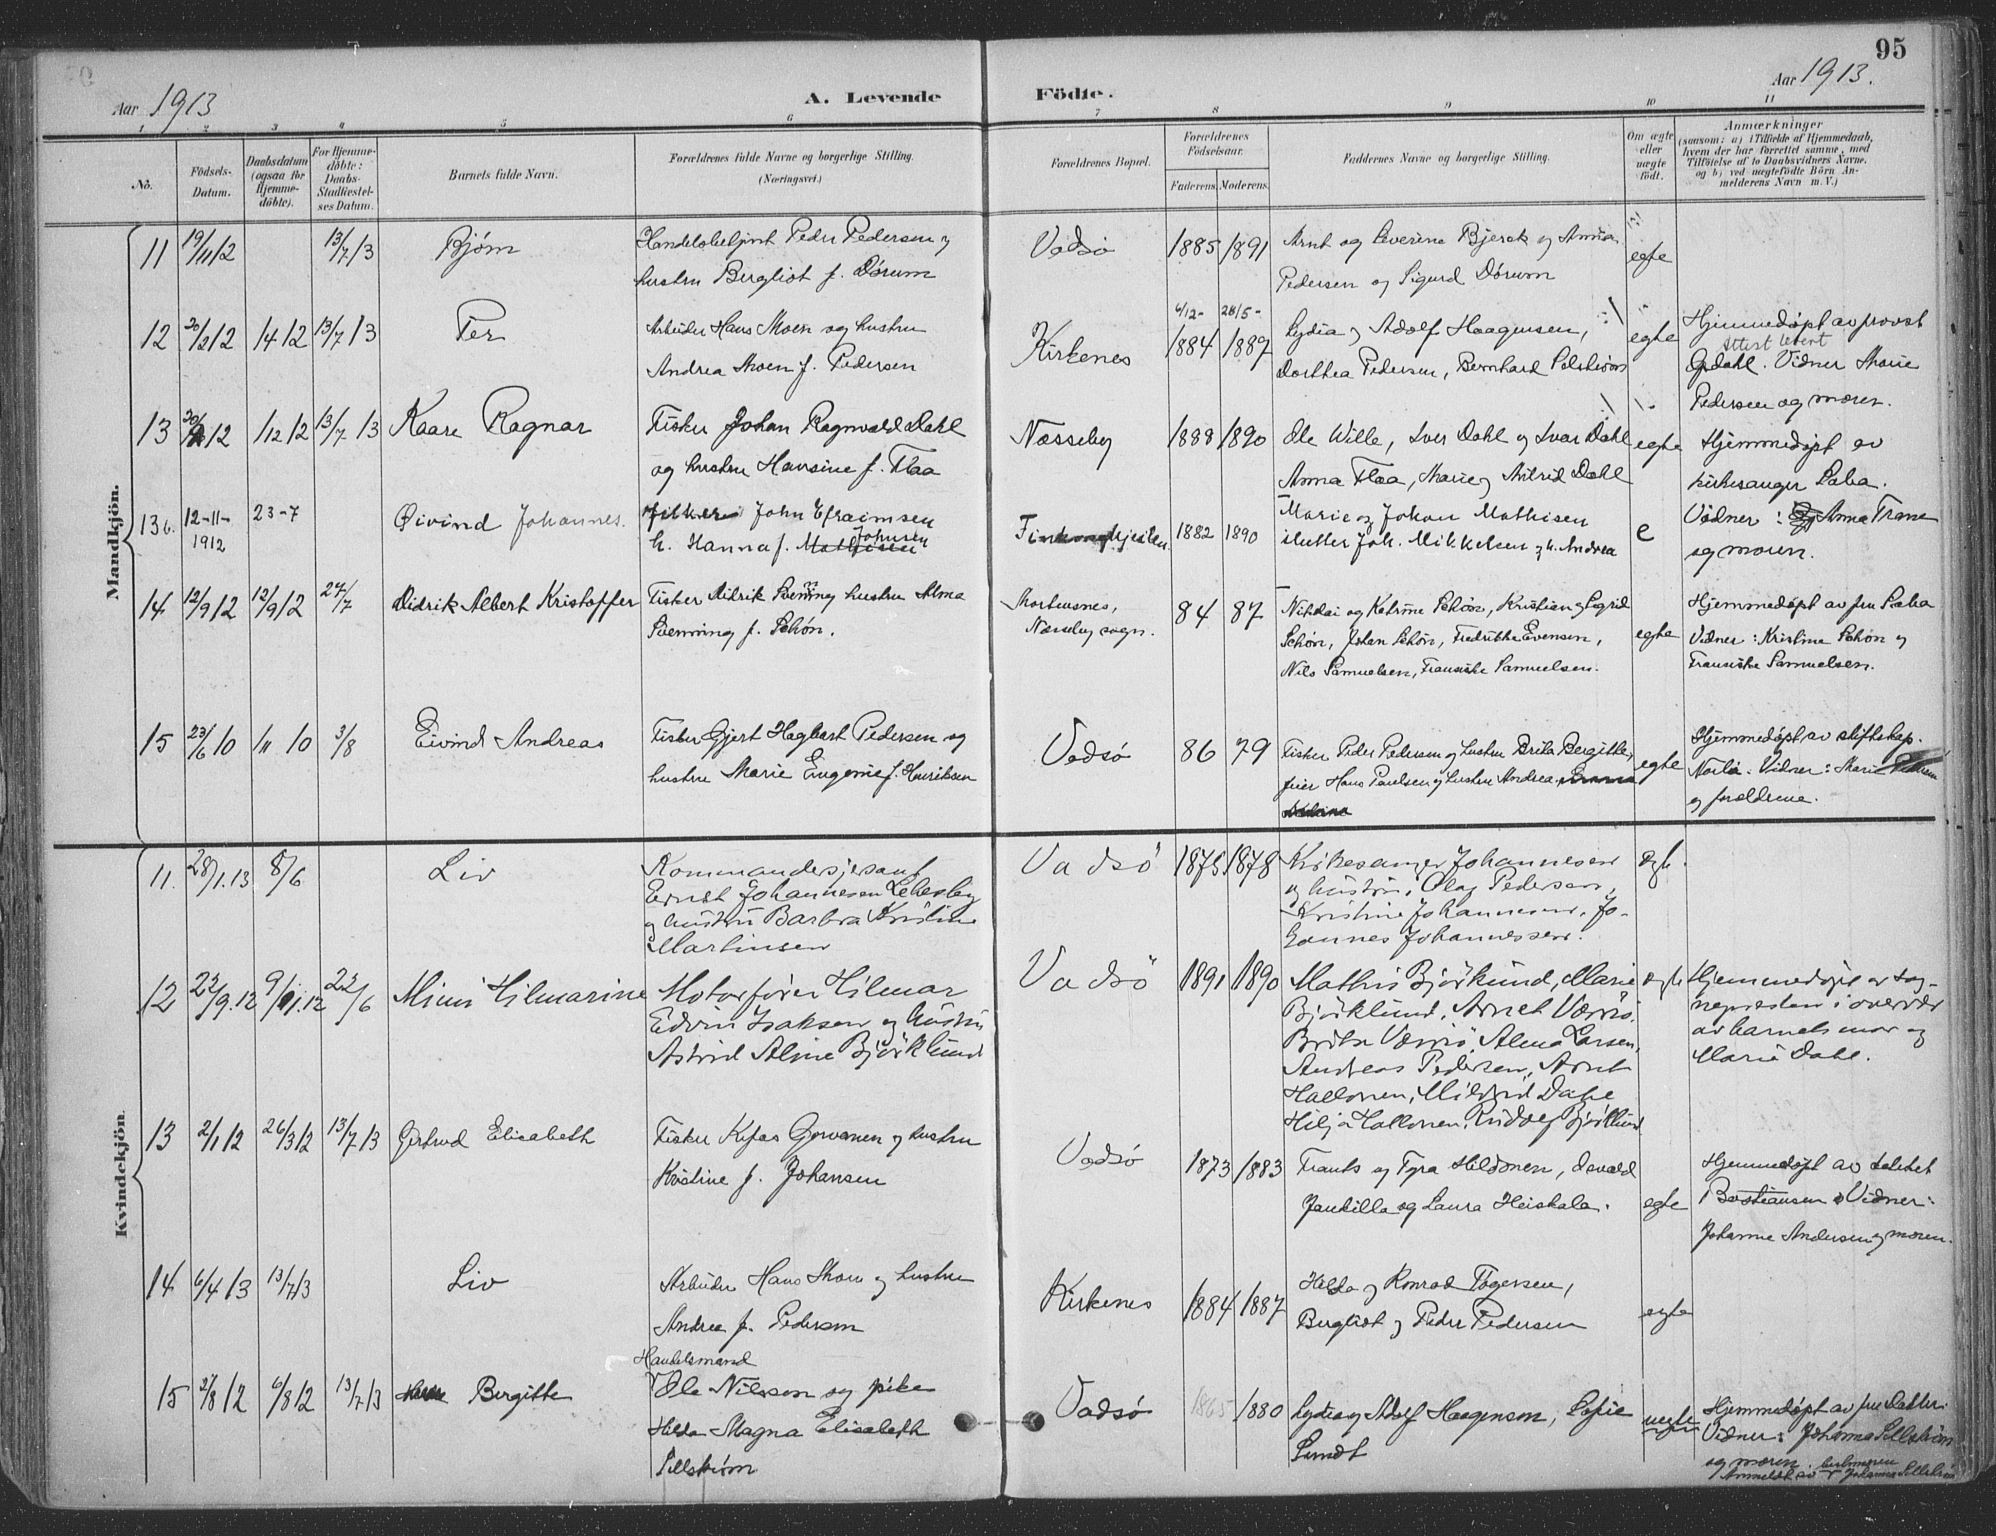 95
Aar 1913
A. Levende
Födte.
Aar 1913.
1 2 3 4 5 6 7 8 9 10 11
No.
Födsels-
Datum.
Daabsdatum
(ogsaa for
Hjemme-
döbte).
For Hjemme-
döbte:
Daabs-
Stadfæstel-
ses Datum.
Barnets fulde Navn.
Forældrenes fulde Navne og borgerlige Stilling.
(Næringsvei.)
Forældrenes Bopæl.
Forældrenes
Födselsaar.
Faderens. Moderens.
Faddernes Navne og borgerlige Stilling.
Om ægte
eller
uægte
födt.
Anmærkninger
(saasom: a) i Tilfælde af Hjemmedaab,
hvem der har forrettet samme, med
Tilföielse af to Daabsvidners Navne.
og b) ved uægtefödte Börn An-
melderens Navn m. V.)
Mandkjön.
11 19/11 12 13/7 13 Bjørn
Handelsbetjent Peder Pedersen og
hustru Bergliot f. Dørum
Vadsø 1885 1891
Arnt og Severine Bjerck og Anna
Pedersen og Sigurd Dørum
egte
12 20/2 12 14 12 13/7 13 Per
Arbeider Hans Moen og hustru
Andrea Moen f. Pedersen
Kirkenes 6/12- 1884 28/5- 1887
Lydia og Adolf Haagensen,
Dorthea Pedersen, Bernhard
egte
Hjemmedøpt av provst
attest levert
Opdahl. Vidner Marie
Pedersen og moren.
13 12 1/12 12 13/7 13 Kaare Ragnar
Fisker Johan Ragnvald Dahl
og hustru Hansine f. Flaa
Næsseby 1888 1890
Ole Wille, Iver Dahl og Ivar Dahl
Anna Flaa, Marie og Astrid Dahl
egte
Hjemmedøpt av
kirkesanger Saba.
Vidner: Anna Trane
og moren.
13b. 12-11-
1912
23-7
Øivind Johannes.
Fisker John Efraimsen
h. Hanna f. Mathisen Johnsen
1882 1890
Marie og Johan Mathisen
Joh. Mikkelsen og h. Andrea
e
14 12/9 12 13/9 12 27/7 Didrik Albert Kristoffer
Fisker Didrik og hustru Alma
f. Schøn.
Mortensnes,
Næsseby sogn.
84 87
Nikolai og Katrine Schøn, Kristian og Sigrid
Schøn, Johan Schøn, Fredrikke Evensen,
Nils Samuelsen, Fransiske Samuelsen.
egte
Hjemmedøpt av fru Saba
Vidner: Kristine Schøn og
Fransiske Samuelsen.
15 23/6 10 1/11 10 3/8 Eivind Andreas
Fisker Gjert Hagbart Pedersen og
hustru Marie Eugenie f. Henriksen
Vadsø 86 79
Fisker Peder Pedersen og hustru Berit Bergitte,
feier Hans Paulsen og hustru Andrea
egte
Hjemmedøpt av stiftskap.
Vidner: Marie Pedersen
og forældrene.
Kvindekjön.
11. 28/1.13 8/6 Liv
Kommandersjersant
Ernst Johannesen Lebesby
og hustru Barbra Kristine
Martinsen
Vadsö 1875 1878
Kirkesanger Johannesen
og hustru, Olag Pedersen,
Kristine Johannesen, Jo-
hannes Johannessen.
egte
12 22/9.12 9/11.12 22/6 Mimi Hilmarine
Motorfører Hilmar
Edvin Isaksen og hustru
Astrid Aline Björklund
Vadsö 1891 1890
Mathis Björklund, Marie
Björklund, Arnet
Alma Larsen,
Andreas Pedersen, Arnt
Hallonen, Mildrid Dahl
Hilja Hallonen, Rudolf Björklund
egte
Hjemmedöpt av sog-
nepresten i overvær
av barnets mor og
Marie Dahl.
13 2/1 12 26/3 12 13/7 13 Gjertrud Elisabeth
Fisker Kefas Gorvanen og hustru
Kristine f. Johansen
Vadsø 1873 1883
Frants og Tyra Heldonen, Osvald
Jankilla og Laura Heiskala.
egte
Hjemmedøpt av
Bastiansen Vidner:
Johanne Andersen og moren.
14 6/4 13 13/7 13 Liv
Arbeider Hans Moen og hustru
Andrea f. Pedersen
Kirkenes 1884 1887
Helda og Konrad Togersen,
Bergliot og Peder Pedersen
egte
15 2/8 12 6/8 12 13/7 13 Bergitte
Handelsmand
Ole Nilssen og pike
Hilda Magna Elisabeth
Sillstrøm
Vadsø 1865 1880
Lydia og Adolf Haagensen, Sofie
Lundt
uegte
Hjemmedøpt av fru
Vidner: Johanna Sillstrøm
og moren.
Anmeldt av Johanna Sillstrøm